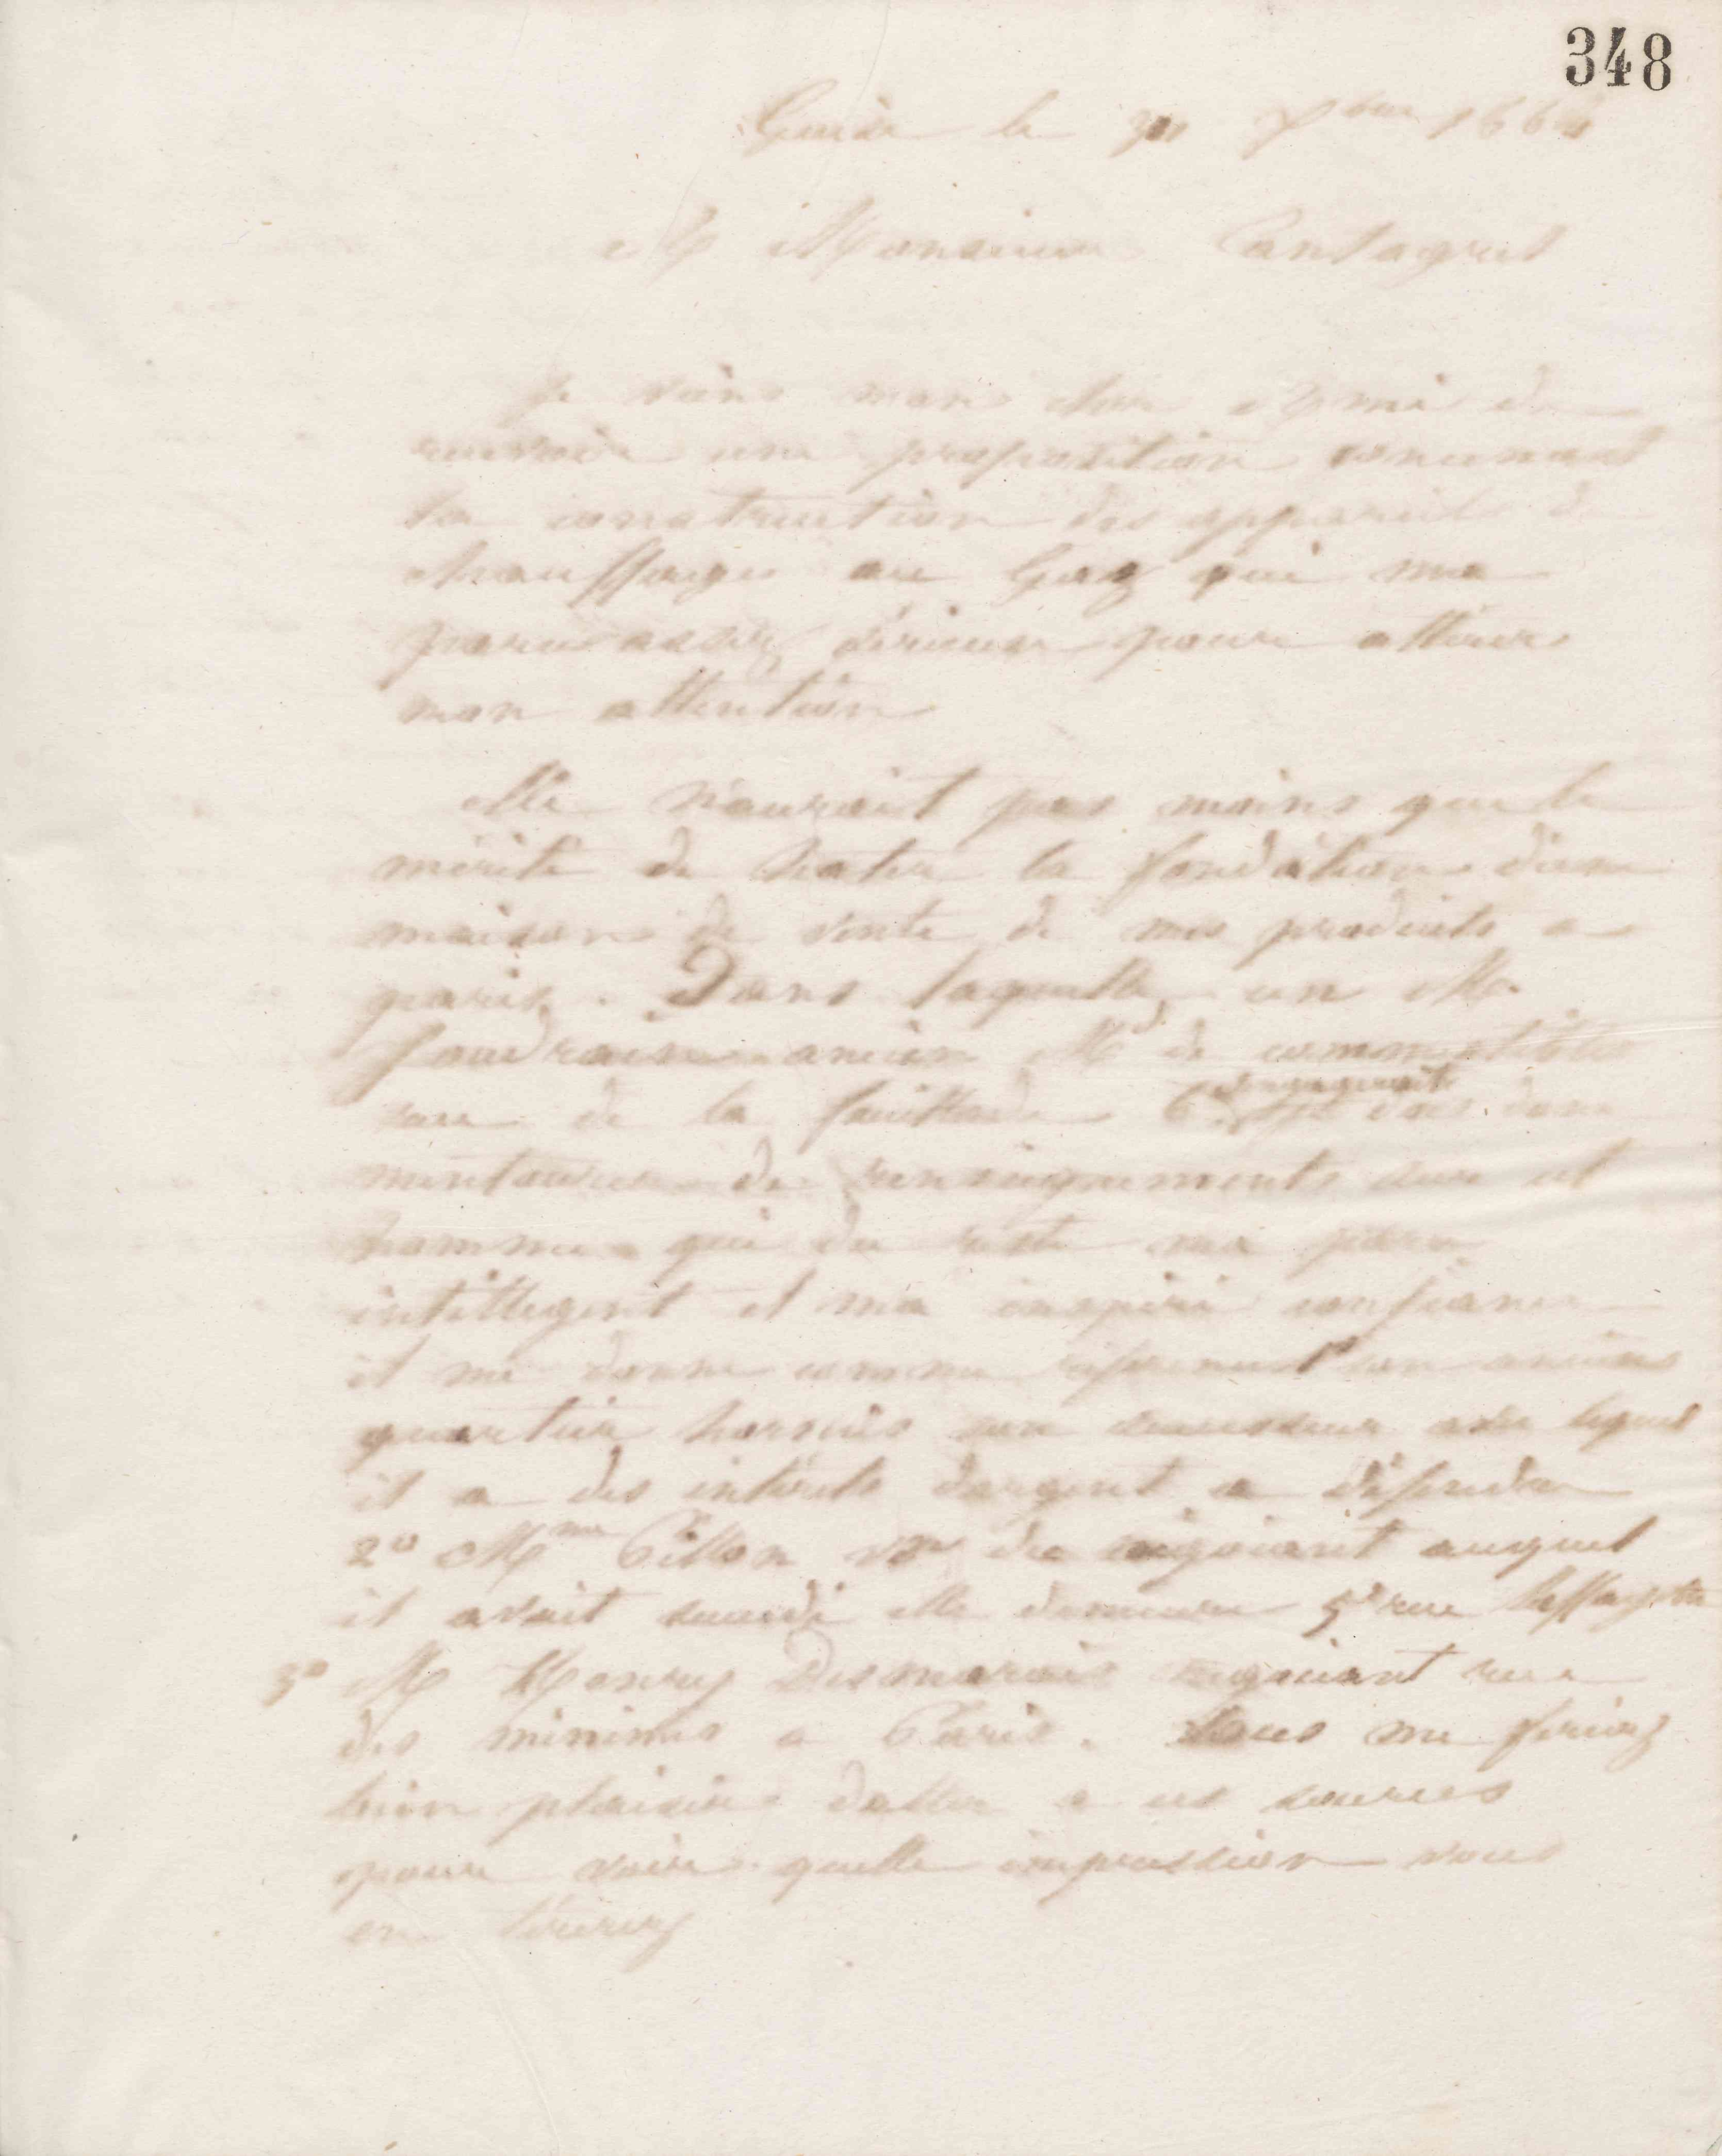 348
Guise le Xbre 186
A Monsieur Cantagrel
Je viens mon cher Ami de
recevoir une proposition concernant
la construction des appareils de
chauffage au Gaz qui ma
paru assez sérieuse pour attirer
mon attention
elle n'aurait pas moins que le
mérite de hater la fondation d'une
maison de vente de mes produits a
paris. Dans laquelle un Mr
ancien Md de comestibles
rue de la feuillade 6 s'engagerait
de renseignements sur cet
homme qui du reste ma paru
intelligent et m'a inspiré confiance
il me donne comme son ancien
quartier son successeur avec lequel
il a des intérêts dargent a défendre
2° Mme Pillon Vve du négociant auquel
il avait succédé elle demeure rue Laffayette
3° M Henry Desmarais négociant rue
des minimes a Paris. Vous me feriez
bien plaisir daller a ces sources
pour voir quelle impression vous
en tirerez